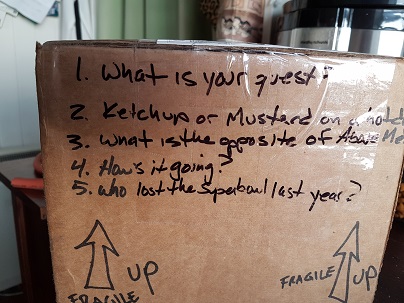 1. What is your quest?
2. Ketchup or Mustard on a hotd
3. What is the opposite of Above Me
4. How's it going?
5. who lost the Superbowl last year?
UP
FRAGILE
FRAGILE
UP